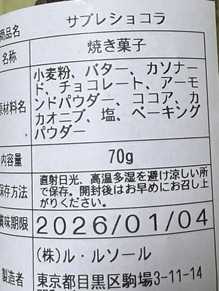 商品名 サブレショコラ
名称 焼き菓子
原材料名 小麦粉、バター、カソナード、チョコレート、アーモンドパウダー、ココア、カカオニブ、塩、ベーキングパウダー
内容量 70g
保存方法 直射日光、高温多湿を避け涼しい所で保存。開封後はお早めにお召し上がりください。
賞味期限 2026/01/04
製造者 (株)ル・ルソール
東京都目黒区駒場3-11-14